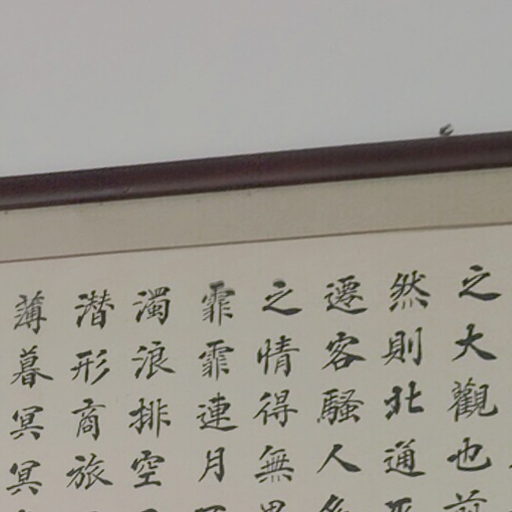 之大觀也前
然則北通巫
遷客騷人多
之情得無異
霏霏連月
濁浪排空
潜形商旅
薄暮冥冥